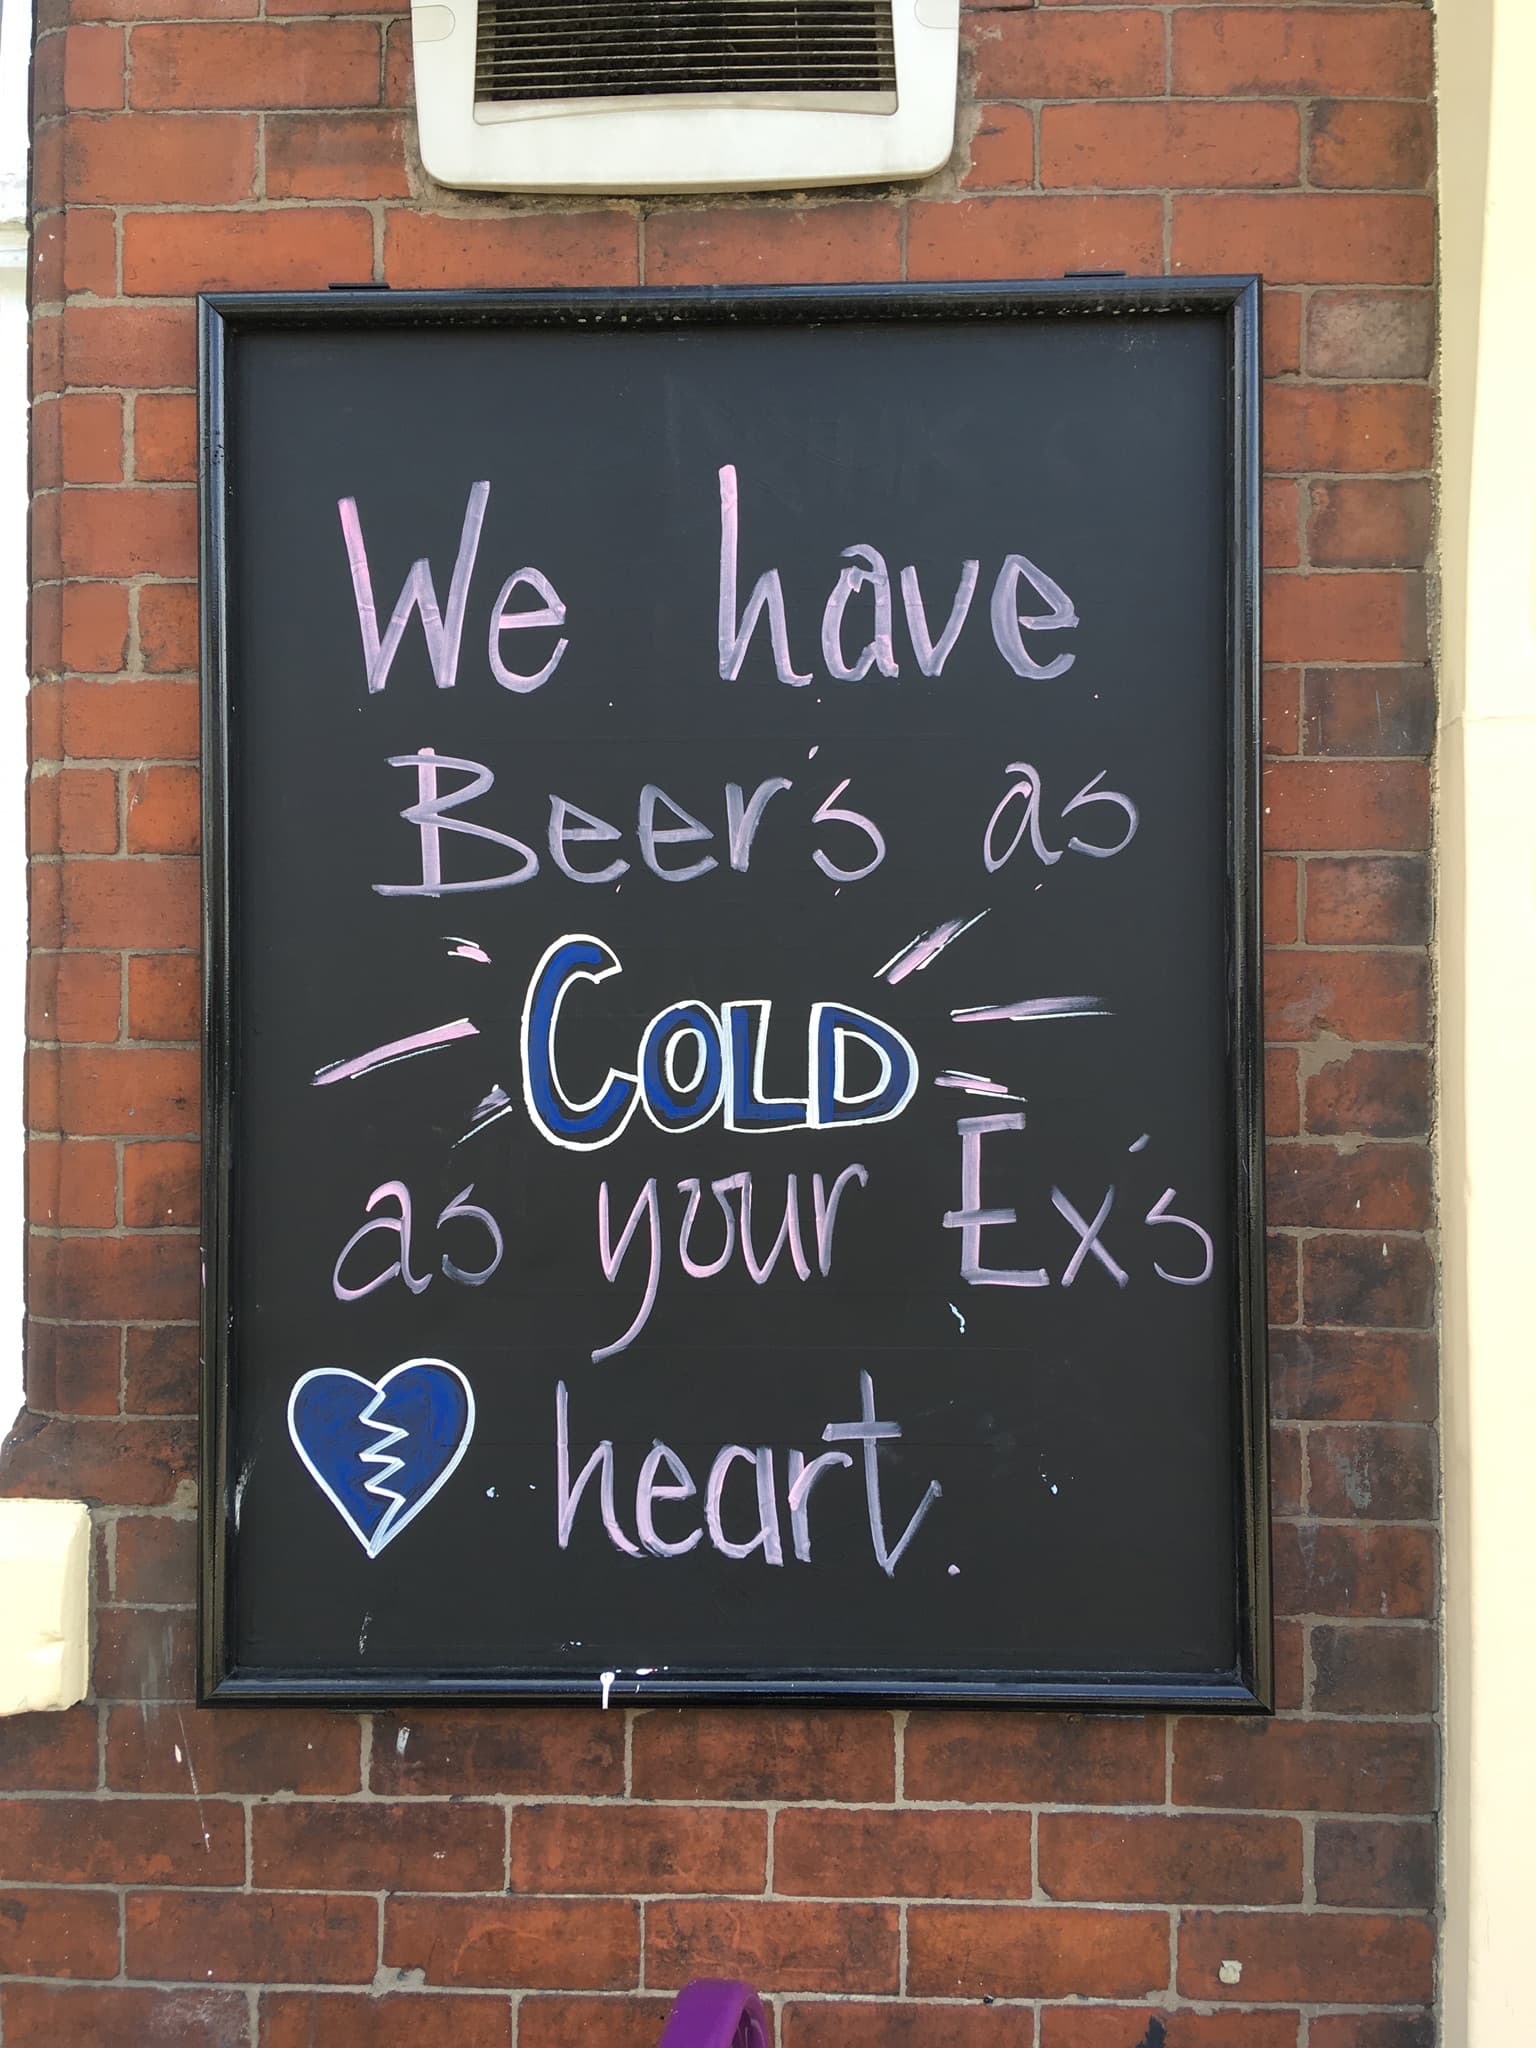 We have
Beer's as
COLD
as your Ex's
heart.